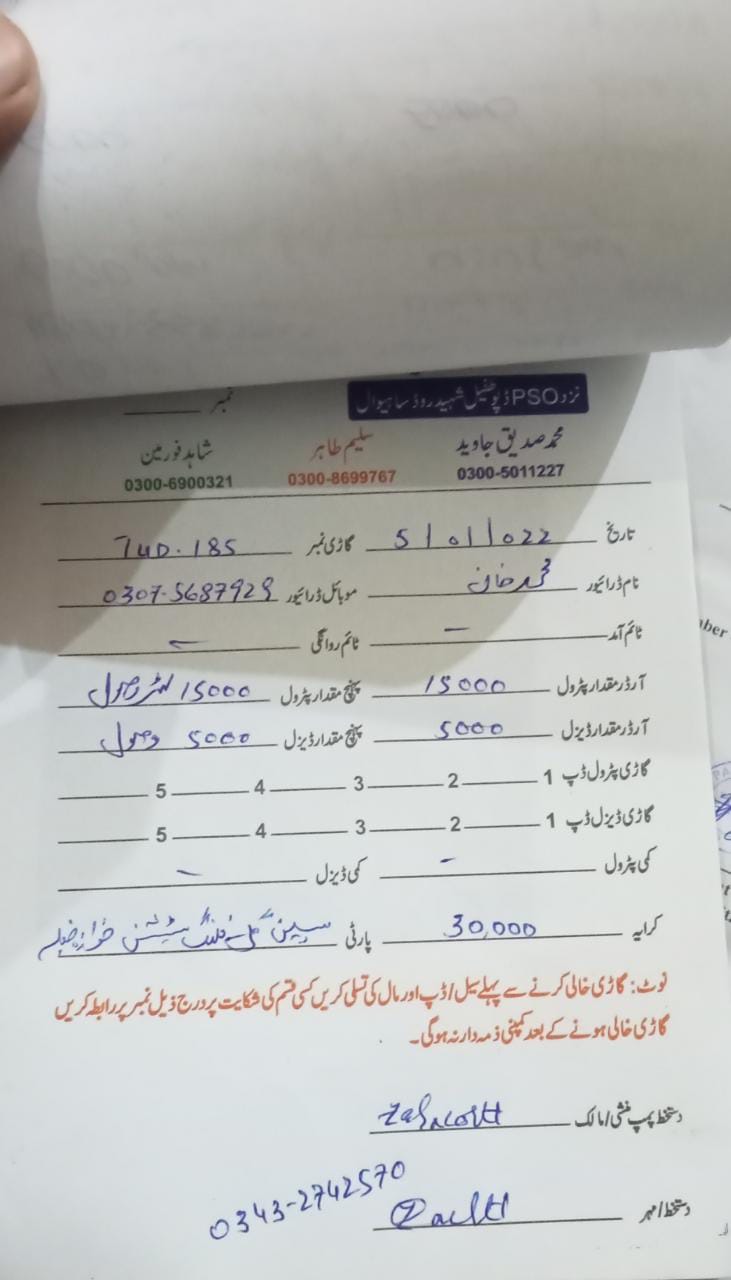 نزد PSO ڈپو طفیل شہید روڈ ساہیوال
نمبر
محمد صدیق جاوید سلیم طاہر شاہد فورمین
0300-5011227 0300-8699767 0300-6900321
تاریخ 5/01/022 گاڑی نمبر TUD.185
نام ڈرائیور محمد خان موبائل ڈرائیور 0307-5687929
ٹائم آمد — ٹائم روانگی —
آرڈر مقدار پٹرول 15000 پہنچ مقدار پٹرول 15000 لٹر وصول
آرڈر مقدار ڈیزل 5000 پہنچ مقدار ڈیزل 5000 وصول
گاڑی پٹرول ڈپ 1 2 3 4 5
گاڑی ڈیزل ڈپ 1 2 3 4 5
کمی پٹرول — کمی ڈیزل —
کرایہ 30,000 پارٹی فلنگ سٹیشن
نوٹ: گاڑی خالی کرنے سے پہلے سیل/ڈپ اور مال کی تسلی کریں کسی قسم کی شکایت پر درج ذیل نمبر پر رابطہ کریں
گاڑی خالی ہونے کے بعد کمپنی ذمہ دار نہ ہوگی۔
دستخط پمپ منشی/مالک
دستخط/مہر
0343-2742570